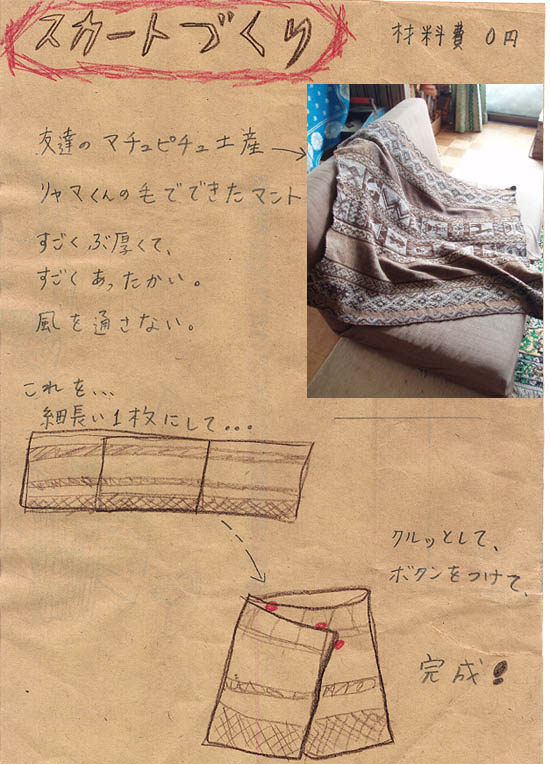 スカートづくり
材料費 0円
友達のマチュピチュ土産→
リャマくんの毛でできたマント
すごくぶ厚くて、
すごくあったかい。
風を通さない。
これを...
細長い1枚にして...
クルッとして、
ボタンをつけて、
完成!